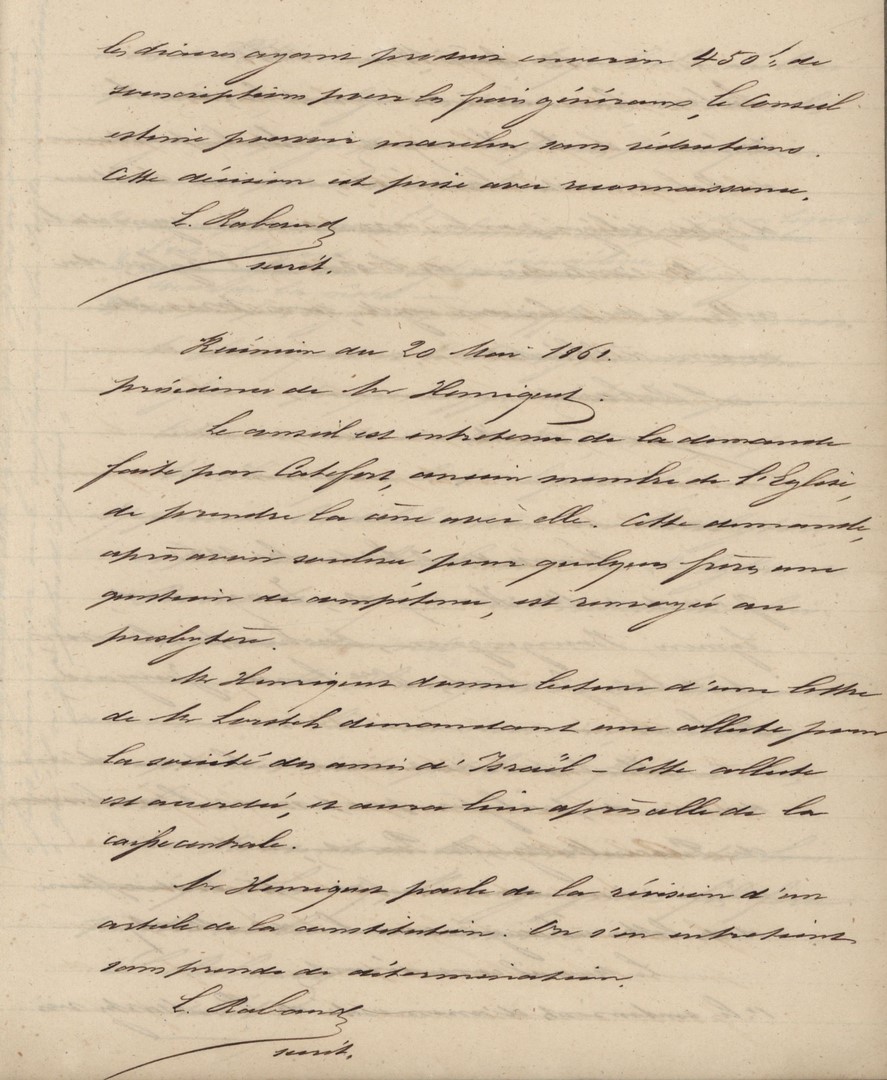 les diacres ayant produit environ 450 f. de
souscriptions pour les frais généraux, le Conseil
estime pouvoir marcher sans réductions.
Cette décision est prise avec reconnaissance.
L. Rabaud
secrét.
Réunion du 20 Mai 1861.
présidence de Mr Henriquet.
Le conseil est entretenu de la demande
faite par Catefort, ancien membre de l'Eglise,
de prendre la cène avec elle. Cette demande,
après avoir soulevé pour quelques frères une
question de compétence, est renvoyée au
presbytère.
Mr Henriquet donne lecture d'une lettre
de Mr demandant une collecte pour
la société des amis d'Israël – Cette collecte
est accordée, et aura lieu après celle de la
caisse centrale.
Mr Henriquet parle de la révision d'un
article de la constitution. On s'en entretient
sans prendre de détermination.
L. Rabaud
secrét.